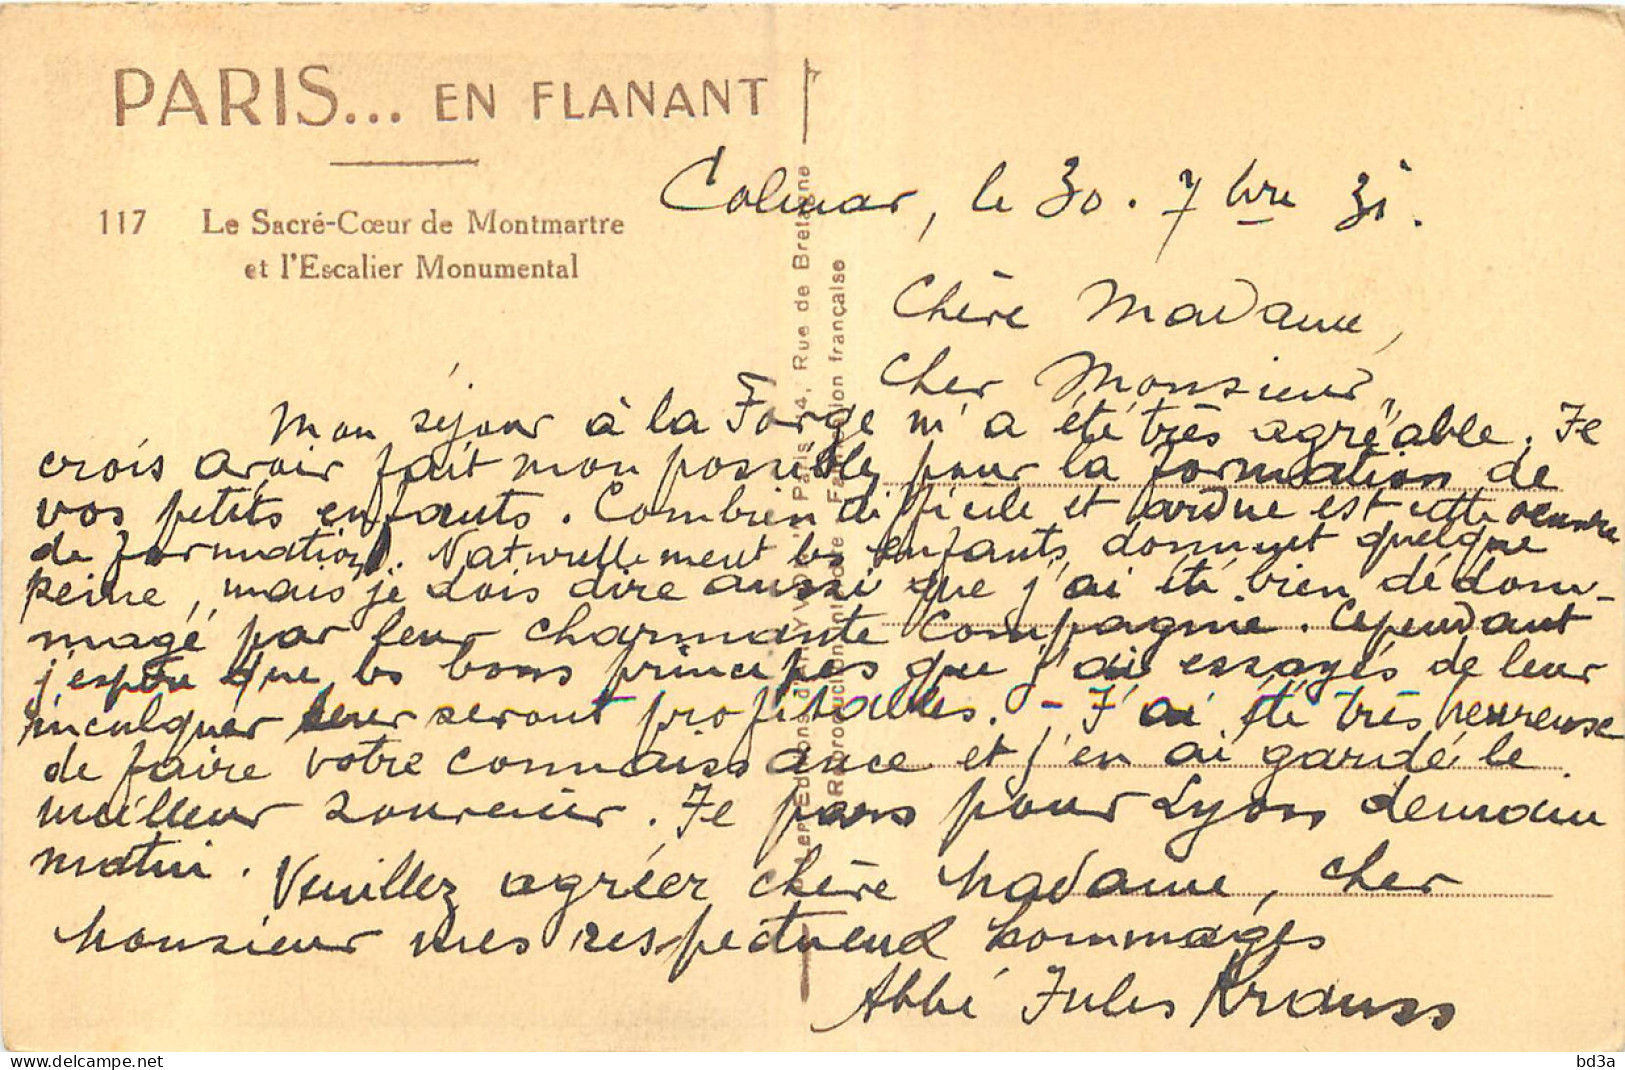 PARIS... EN FLANANT
117 Le Sacré-Cœur de Montmartre
et l'Escalier Monumental
Colmar, le 30. 7bre 31.
Chère Madame,
cher Monsieur,
Mon séjour à la Forge m'a été très agréable. Je
crois avoir fait mon possible pour la formation de
vos petits enfants. Combien difficile et ardue est cette oeuvre
de formation. Naturellement les enfants donnent quelque
peine, mais je dois dire aussi que j'ai été bien dédom-
magé par leur charmante compagnie. Cependant
j'espère que les bons principes que j'ai essayés de leur
inculquer leur seront profitables. - J'ai été très heureuse
de faire votre connaissance et j'en ai gardé le
meilleur souvenir. Je pars pour Lyon demain
matin. Veuillez agréer chère Madame, cher
Monsieur mes respectueux hommages
Abbé Jules Krauss
Les Editions d'Art YVON Paris 14, Rue de Bretagne
Reproduction interdite Fabrication française
bd3a